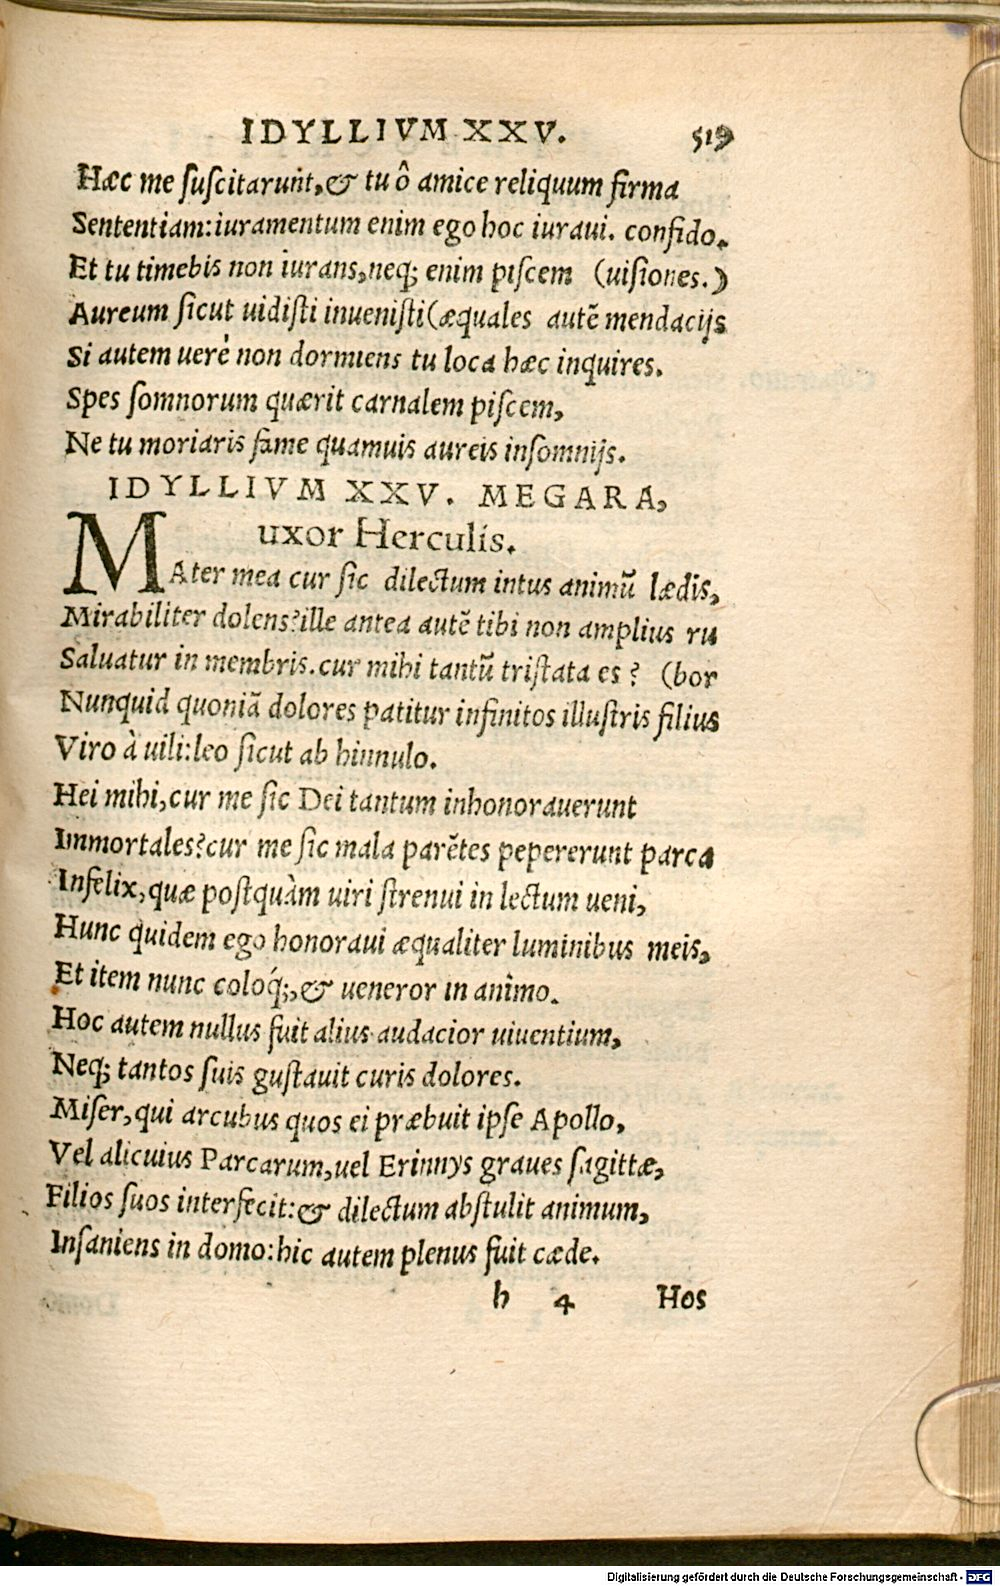 IDYLLIVM XXV. 519
Hæc me ſuſcitarunt,& tu ô amice reliquum firma
Sententiam:iuramentum enim ego hoc iuraui. confido.
Et tu timebis non iurans,neq; enim piſcem (uiſiones.)
Aureum ſicut uidiſti inueniſti(æquales autē mendacijs
Si autem uerè non dormiens tu loca hæc inquires.
Spes ſomnorum quærit carnalem piſcem,
Ne tu moriaris fame quamuis aureis inſomnijs.
IDYLLIVM XXV. MEGARA,
uxor Herculis.
MAter mea cur ſic dilectum intus animū lædis,
Mirabiliter dolens?ille antea autē tibi non amplius ru
Saluatur in membris.cur mihi tantū triſtata es ? (bor
Nunquid quoniā dolores patitur infinitos illuſtris filius
Viro à uili:leo ſicut ab hinnulo.
Hei mihi,cur me ſic Dei tantum inhonorauerunt
Immortales?cur me ſic mala parētes pepererunt parca
Infelix,quæ poſtquàm uiri ſtrenui in lectum ueni,
Hunc quidem ego honoraui æqualiter luminibus meis,
Et item nunc coloq́;,& ueneror in animo.
Hoc autem nullus fuit alius audacior uiuentium,
Neq; tantos ſuis guſtauit curis dolores.
Miſer,qui arcubus quos ei præbuit ipſe Apollo,
Vel alicuius Parcarum,uel Erinnys graues ſagittæ,
Filios ſuos interfecit:& dilectum abſtulit animum,
Inſaniens in domo:hic autem plenus fuit cæde.
h 4 Hos
Digitalisierung gefördert durch die Deutsche Forschungsgemeinschaft - DFG